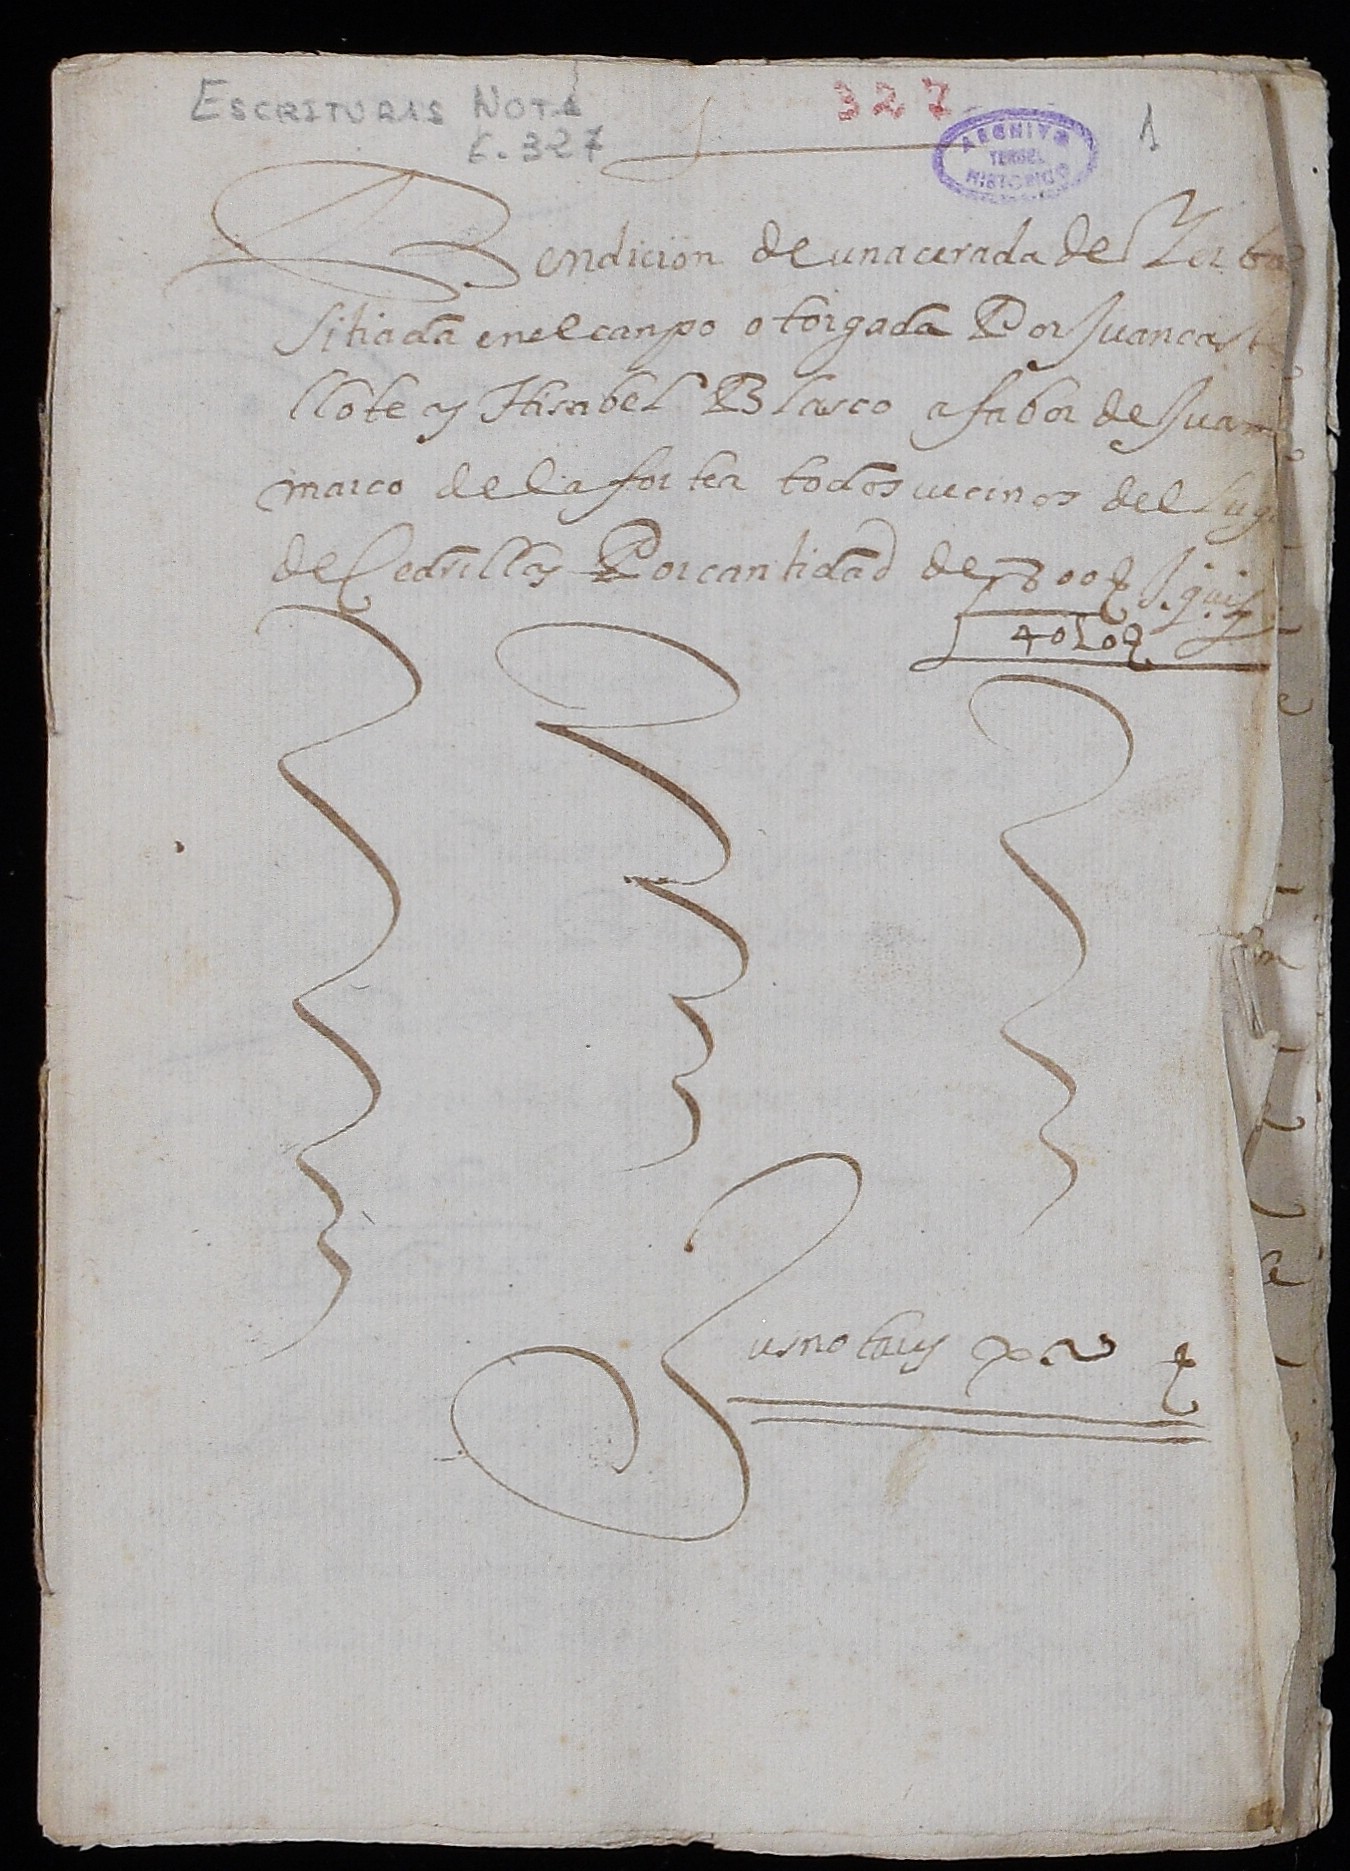 ESCRITURAS NOTA
C. 327
327
1
ARCHIVO
TERUEL
HISTORICO
Bendicion de una cerada de Yerba
sitiada en el canpo otorgada Por Juan caste
llote y Hisabel Blasco a fabor de Juan
marco de la fortea todos vecinos del lug
de Cedrillas Por cantidad de 800